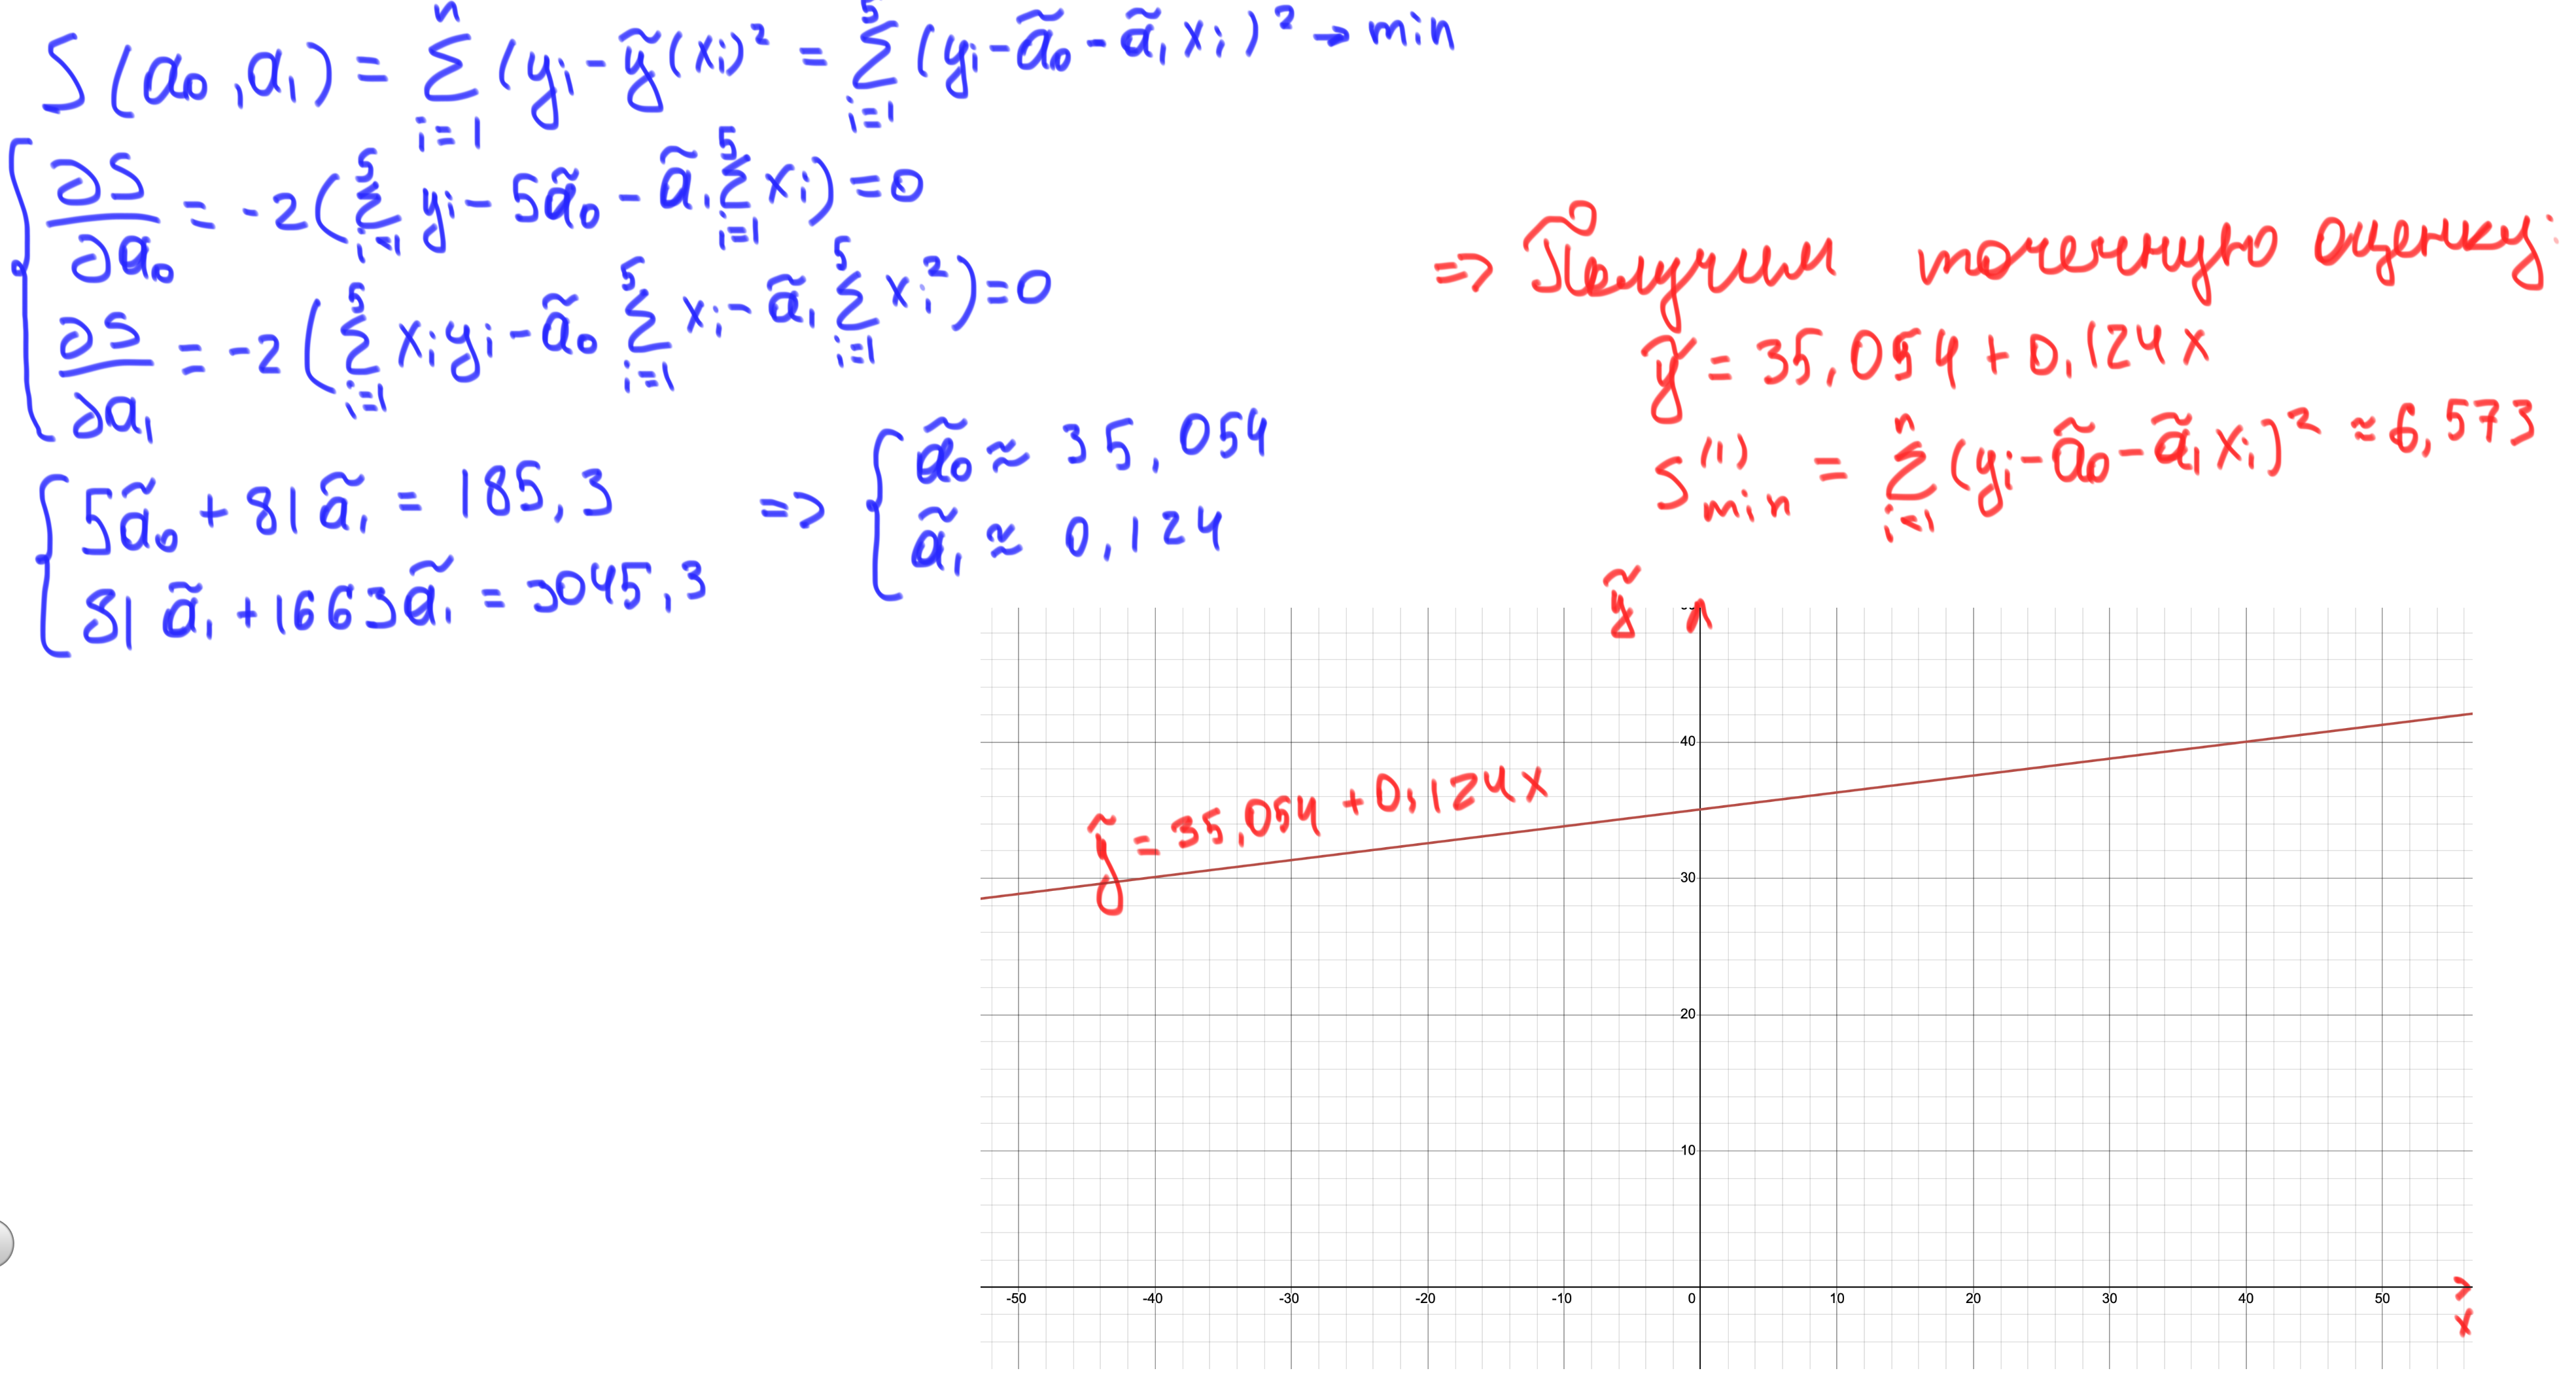 S(a₀, a₁) = Σ_{i=1}^{n} (yᵢ - ỹ(xᵢ)² = Σ_{i=1}^{5} (yᵢ - ã₀ - ã₁xᵢ)² → min
∂S/∂a₀ = -2(Σ_{i=1}^{5} yᵢ - 5ã₀ - ã₁ Σ_{i=1}^{5} xᵢ) = 0
∂S/∂a₁ = -2(Σ_{i=1}^{5} xᵢyᵢ - ã₀ Σ_{i=1}^{5} xᵢ - ã₁ Σ_{i=1}^{5} xᵢ²) = 0
5ã₀ + 81ã₁ = 185,3
81ã₁ + 1663ã₁ = 3045,3
=> ã₀ ≈ 35,054
ã₁ ≈ 0,124
=> Получим точечную оценку:
ỹ = 35,054 + 0,124x
S_{min}^{(1)} = Σ_{i=1}^{n} (yᵢ - ã₀ - ã₁xᵢ)² ≈ 6,573
ỹ
40
ỹ = 35,054 + 0,124x
30
20
10
-50 -40 -30 -20 -10 0 10 20 30 40 50
x